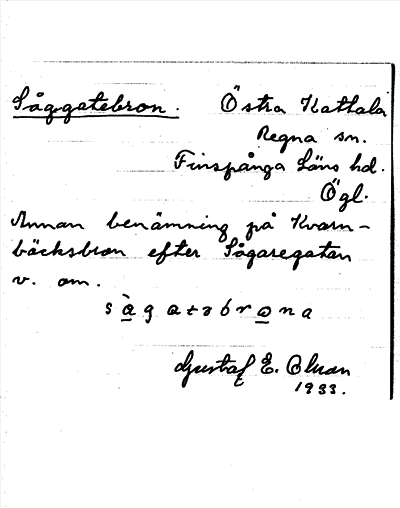 Såggatebron. Östra Kattala
Regna sn.
Finspånga läns hd.
Ögl.
Annan benämning på Kvarn-
bäcksbron efter Sågaregatan
v. om.
sàgatəbrωna
Gustaf E.
1933.